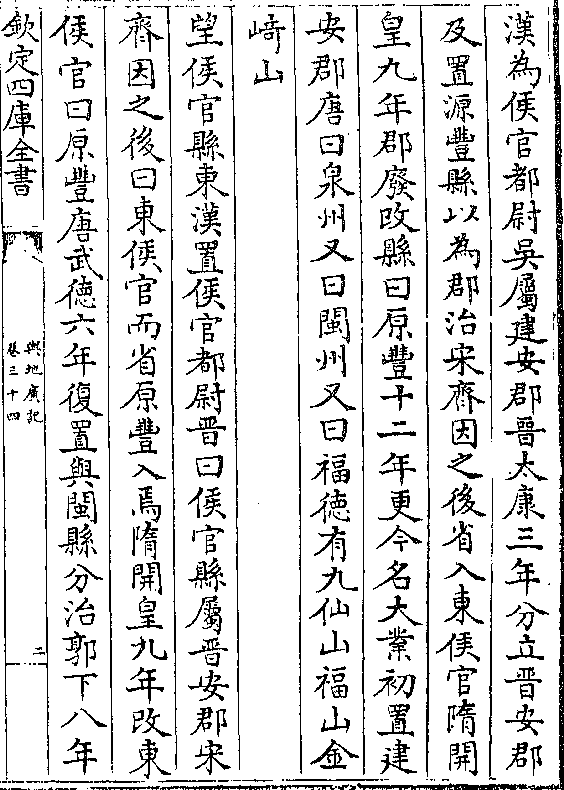 漢為侯官都尉吳屬建安郡晉太康三年分立晉安郡
及置源豐縣以為郡治宋齊因之後省入東侯官隋開
皇九年郡廢改縣曰原豐十二年更今名大業初置建
安郡唐曰泉州又曰閩州又曰福德有九仙山福山金
崎山
望侯官縣東漢置侯官都尉晉曰侯官縣屬晉安郡宋
齊因之後曰東侯官而省原豐入焉隋開皇九年改東
侯官曰原豐唐武德六年復置與閩縣分治郭下八年
欽定四庫全書
輿地廣記
卷三十四
二